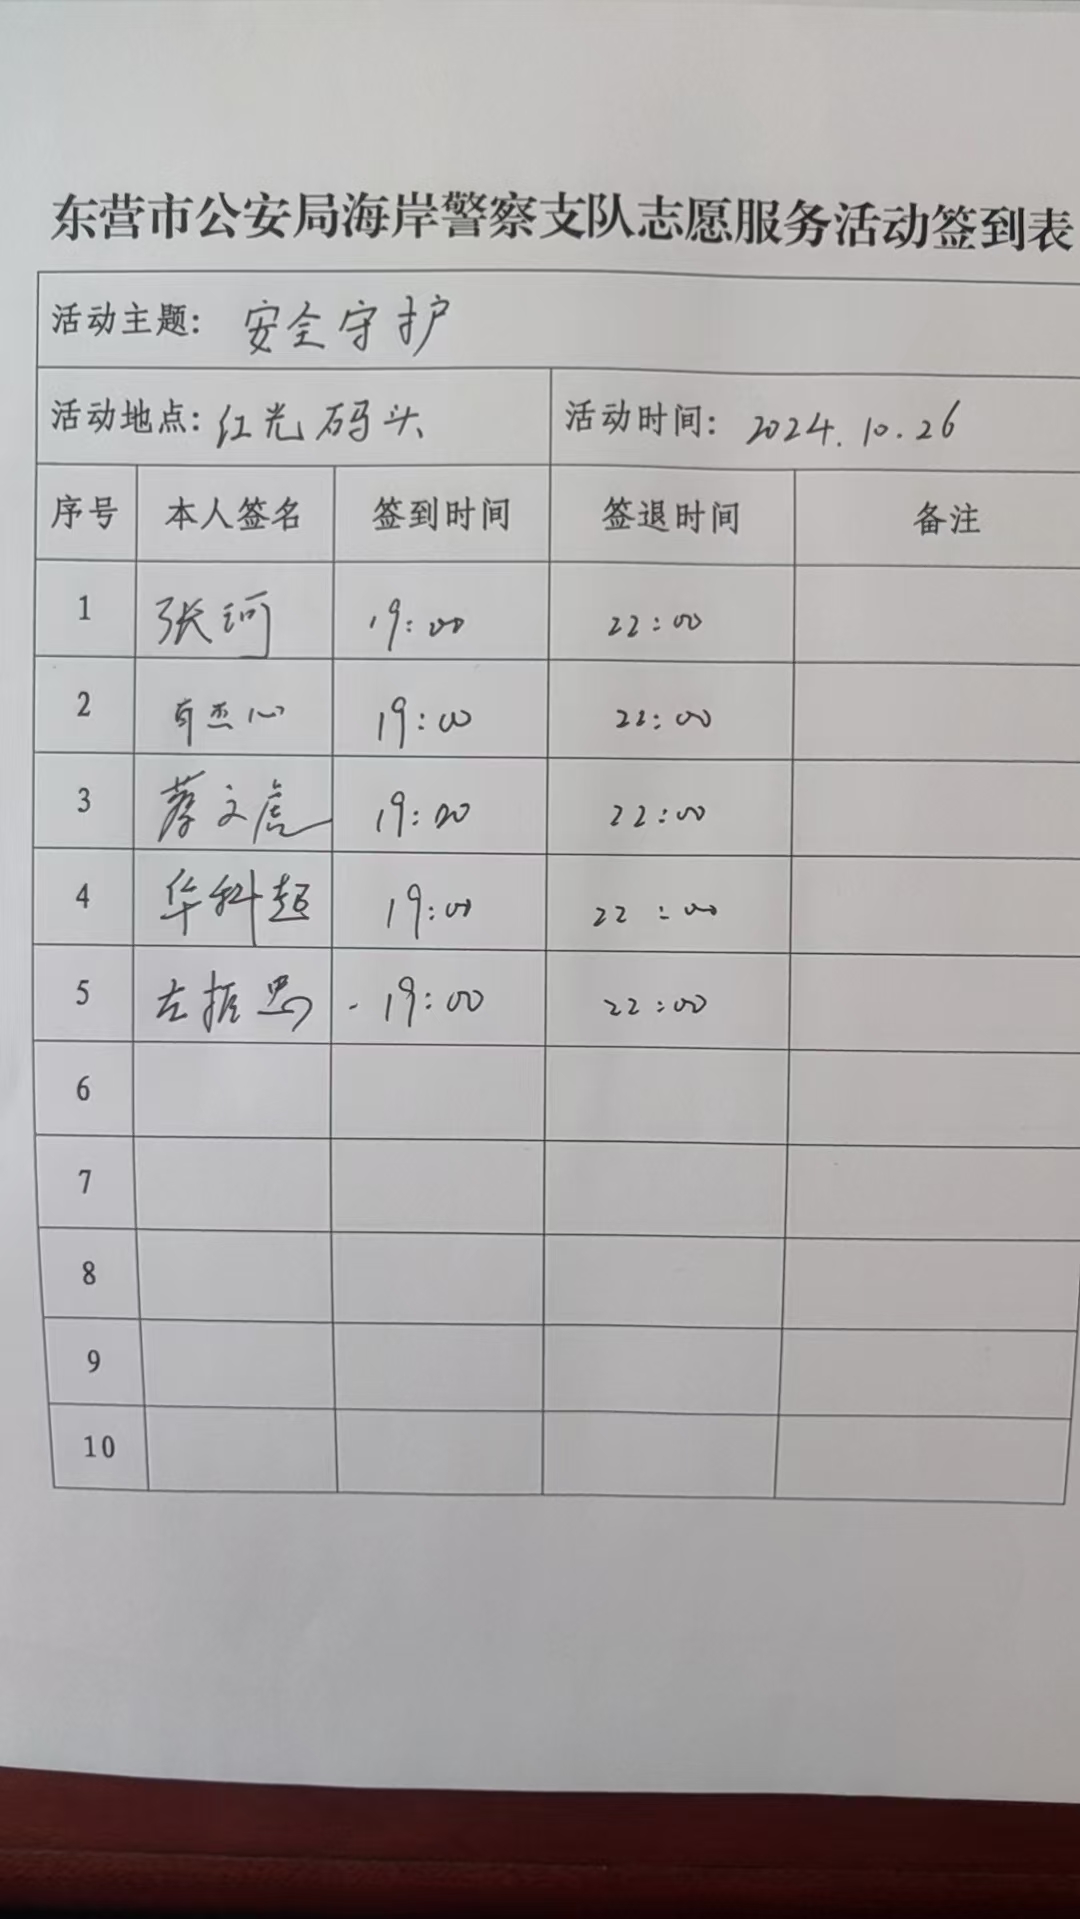 东营市公安局海岸警察支队志愿服务活动签到表
活动主题: 安全守护
活动地点: 红光码头 活动时间: 2024.10.26
序号 本人签名 签到时间 签退时间 备注
1 张珂 19:00 22:00
2 19:00 22:00
3 蔡文虎 19:00 22:00
4 华科超 19:00 22:00
5 左振忠 19:00 22:00
6
7
8
9
10